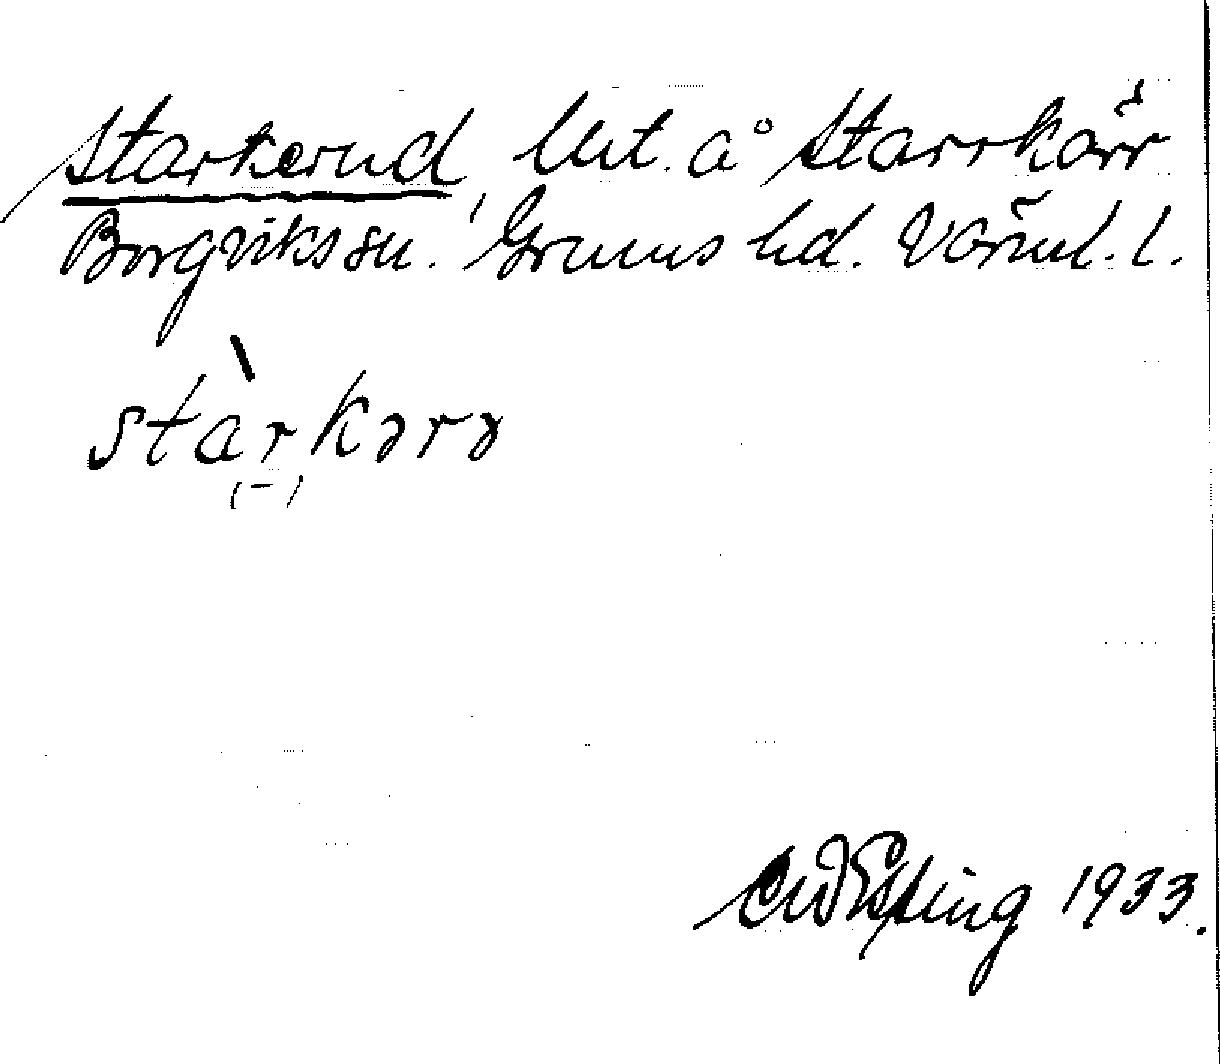 Starkerud, lht. å Starrkärr
Borgviks sn. Grums hd. Värml. l.
stàrkərə
(-)
1933.